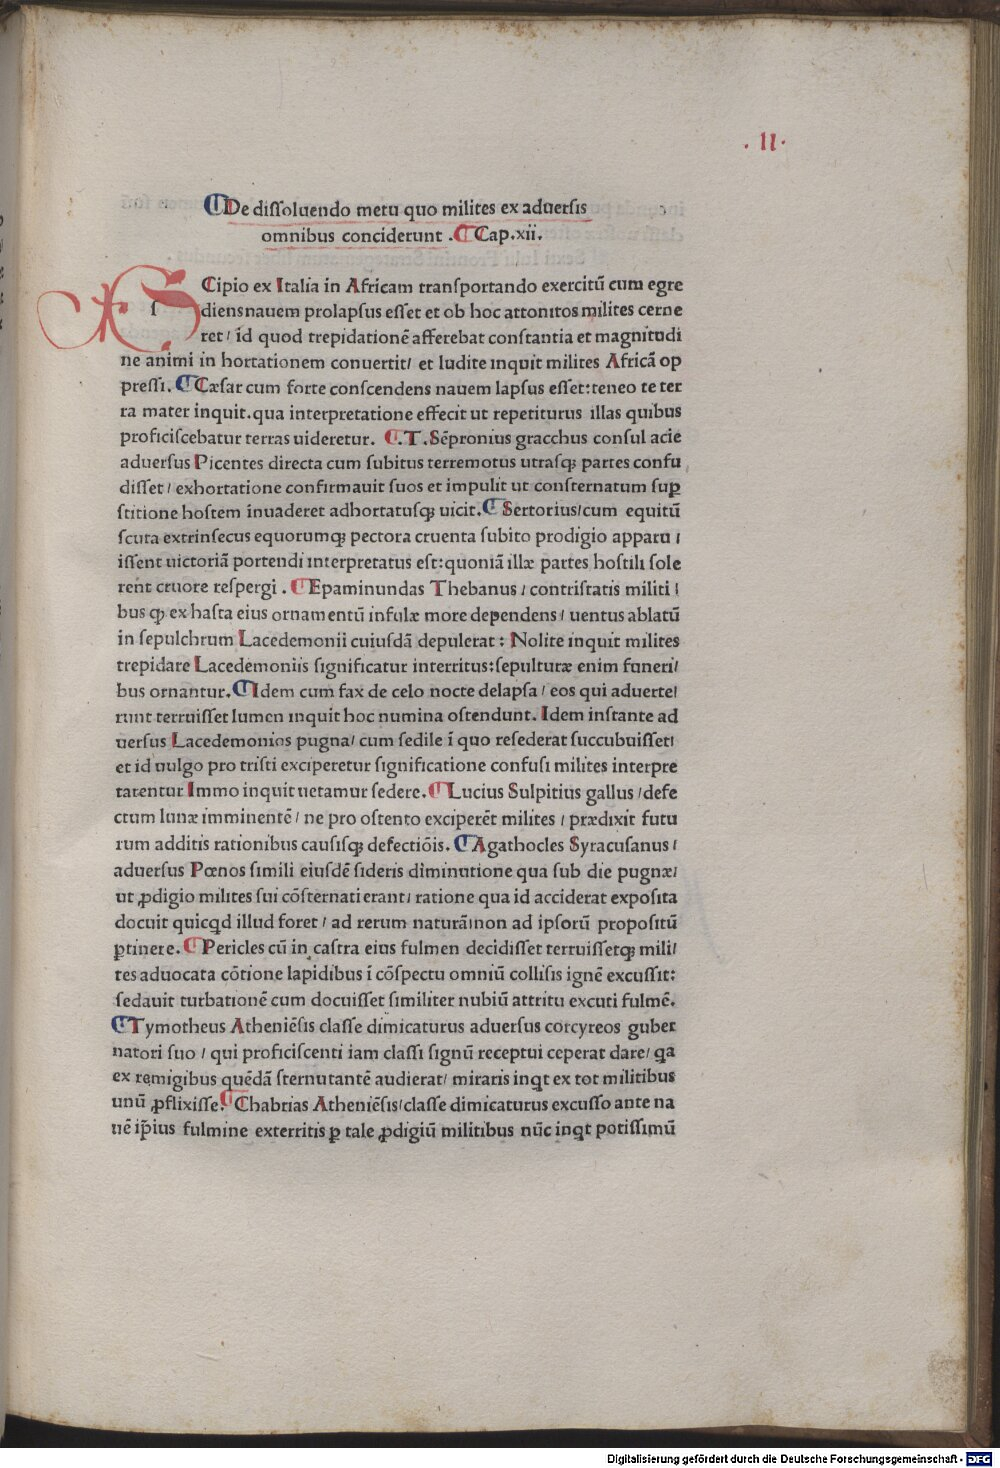 . II .
¶De dissoluendo metu quo milites ex aduersis
omnibus conciderunt .¶Cap.xii.
SCipio ex Italia in Africam transportando exercitū cum egre
diens nauem prolapsus esset et ob hoc attonitos milites cerne
ret/ id quod trepidationē afferebat constantia et magnitudi
ne animi in hortationem conuertit/ et ludite inquit milites Africā op
pressi. ¶Cæsar cum forte conscendens nauem lapsus esset:teneo te ter
ra mater inquit.qua interpretatione effecit ut repetiturus illas quibus
proficiscebatur terras uideretur. ¶.T.Sēpronius gracchus consul acie
aduersus Picentes directa cum subitus terremotus utrasqꝫ partes confu
disset/ exhortatione confirmauit suos et impulit ut consternatum suꝑ
stitione hostem inuaderet adhortatusqꝫ uicit.¶Sertorius/cum equitū
scuta extrinsecus equorumqꝫ pectora cruenta subito prodigio apparu/
issent uictoriā portendi interpretatus est:quoniā illæ partes hostili sole
rent cruore respergi . ¶Epaminundas Thebanus / contristatis militi/
bus ꝙ ex hasta eius ornamentū infulæ more dependens/ uentus ablatū
in sepulchrum Lacedemonii cuiusdā depulerat : Nolite inquit milites
trepidare Lacedemoniis significatur interritus:sepulturæ enim funeri/
bus ornantur.¶Idem cum fax de celo nocte delapsa/ eos qui aduerte/
runt terruisset lumen inquit hoc numina ostendunt. Idem instante ad
uersus Lacedemonios pugna/ cum sedile ī quo resederat succubuisset/
et id uulgo pro tristi exciperetur significatione confusi milites interpre
tarentur Immo inquit uetamur sedere.¶Lucius Sulpitius gallus /defe
ctum lunæ imminentē/ ne pro ostento exciperēt milites / prædixit futu
rum additis rationibus causisqꝫ defectiōis. ¶Agathocles Syracusanus/
aduersus Pœnos simili eiusdē sideris diminutione qua sub die pugnæ/
ut ꝓdigio milites sui cōsternati erant/ ratione qua id acciderat exposita
docuit quicqd illud foret/ ad rerum naturā/non ad ipsorū propositū
ꝑtinere. ¶Pericles cū in castra eius fulmen decidisset terruissetqꝫ mili/
tes aduocata cōtione lapidibus ī cōspectu omniū collisis ignē excussit:
sedauit turbationē cum docuisset similiter nubiū attritu excuti fulmē.
¶Tymotheus Atheniēsis classe dimicaturus aduersus corcyreos guber
natori suo / qui proficiscenti iam classi signū receptui ceperat dare/ qa
ex remigibus quēdā sternutantē audierat/ miraris inqt ex tot militibus
unū ꝓflixisse.¶Chabrias Atheniēsis/classe dimicaturus excusso ante na
uē ip̄ius fulmine exterritis ꝑ tale ꝓdigiū militibus nūc inqt potissimū
Digitalisierung gefördert durch die Deutsche Forschungsgemeinschaft - DFG